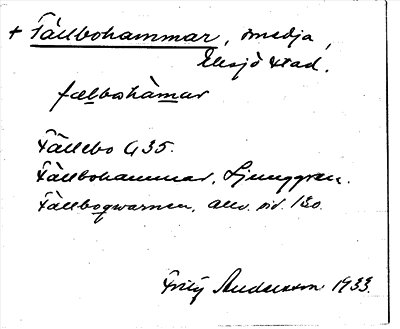 + Fällbohammar, smedja,
Eksjö stad.
fælbohàmar
Fällbo G 35.
Fällbohammar, Ljunggren.
Fällboqwarnen, allm. sid. 130.
Fritz Anderson 1933.